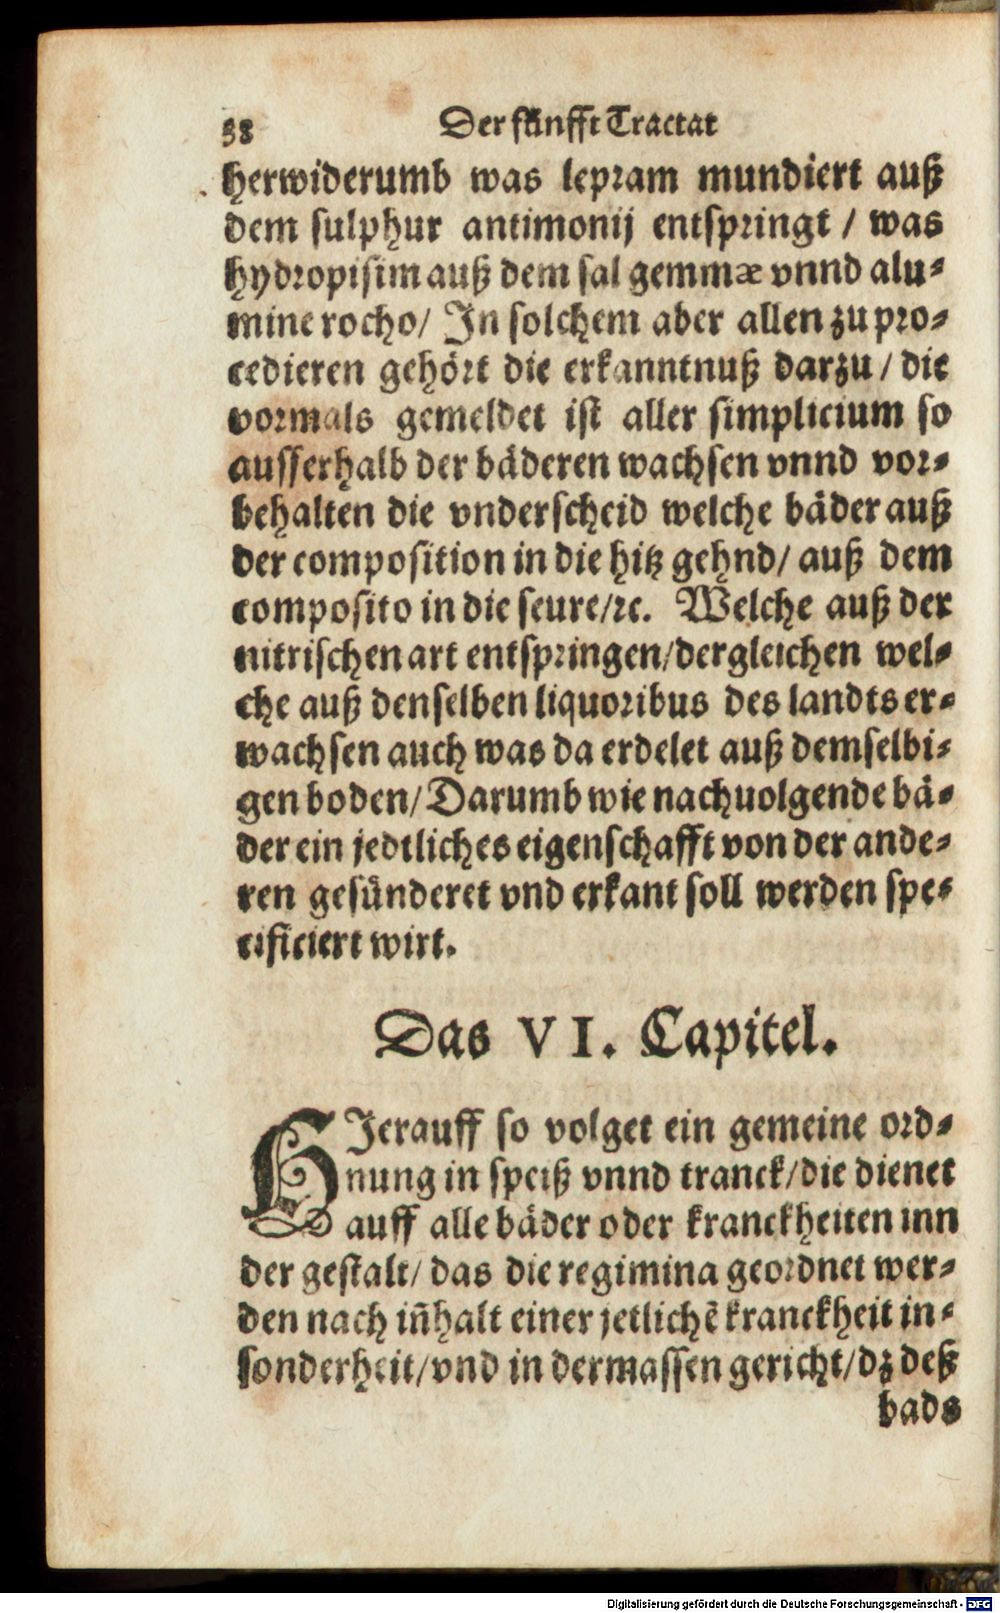 58 Der fünfft Tractat
herwiderumb was lepram mundiert auß
dem sulphur antimonij entspringt / was
hydropisim auß dem sal gemmæ vnnd alu-
mine rocho / In solchem aber allen zu pro-
cedieren gehört die erkanntnuß darzu / die
vormals gemeldet ist aller simplicium so
ausserhalb der bäderen wachsen vnnd vor-
behalten die vnderscheid welche bäder auß
der composition in die hitz gehnd / auß dem
composito in die seure / ꝛc. Welche auß der
nitrischen art entspringen / dergleichen wel-
che auß denselben liquoribus des landts er-
wachsen auch was da erdelet auß demselbi-
gen boden / Darumb wie nachuolgende bä-
der ein jedtliches eigenschafft von der ande-
ren gesünderet vnd erkant soll werden spe-
cificiert wirt.
Das VI. Capitel.
HIerauff so volget ein gemeine ord-
nung in speiß vnnd tranck / die dienet
auff alle bäder oder kranckheiten inn
der gestalt / das die regimina geordnet wer-
den nach iñhalt einer jetlichē kranckheit in-
sonderheit / vnd in dermassen gericht / dz deß
bads
Digitalisierung gefördert durch die Deutsche Forschungsgemeinschaft - DFG